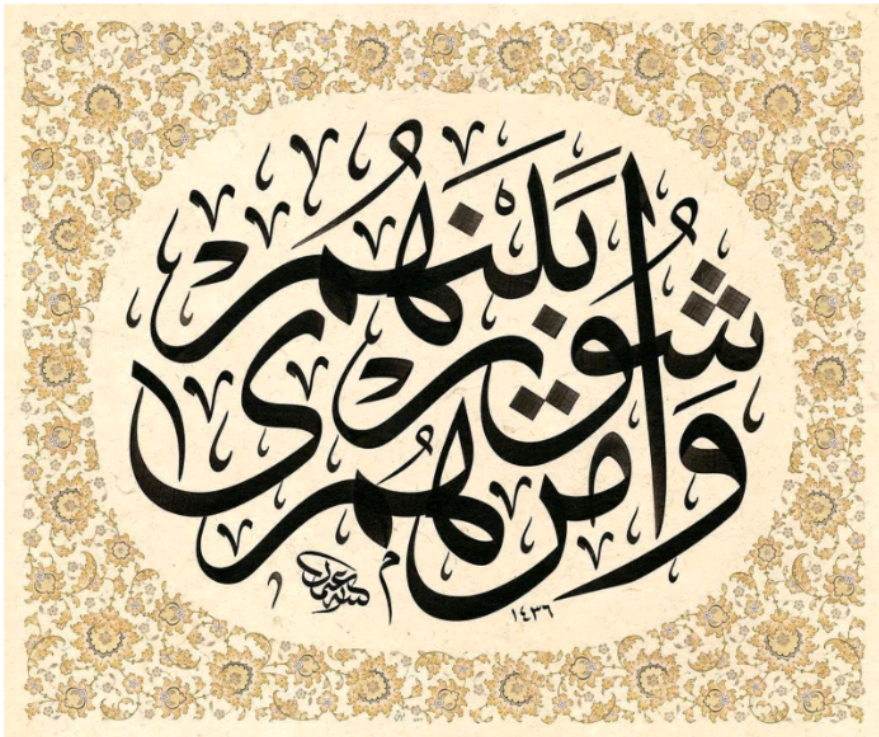 وَأَمْرُهُمْ شُورَىٰ بَيْنَهُمْ
١٤٣٦